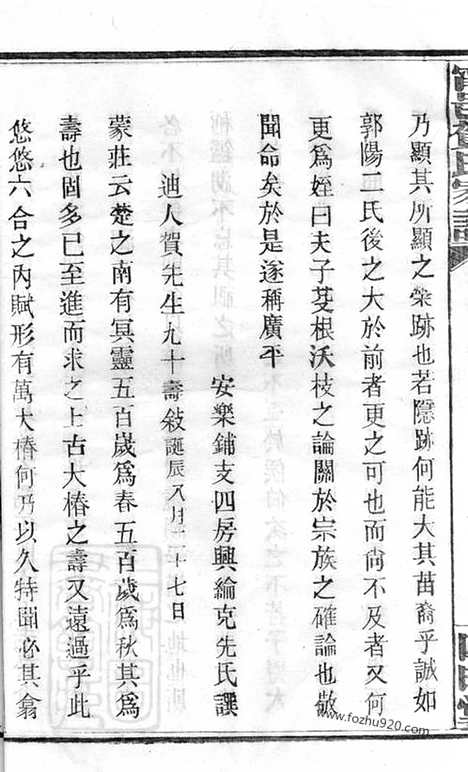 乃顯其所顯之榮跡也若隱跡何能大其苗裔乎誠如
郭陽二氏後之大於前者更之可也而尙不及者又何
更爲姪曰夫子芟根沃枝之論關於宗族之確論也敬
聞命矣於是遂稱廣平
安樂鋪支四房興綸克先氏譔
迪人賀先生九十壽敍誕辰八月二十七日
蒙莊云楚之南有冥靈五百歲爲春五百歲爲秋其爲
壽也固多已至進而求之上古大椿之壽又遠過乎此
悠悠六合之內賦形有萬大椿何乃以久特聞必其翕
www.fozhu920.com